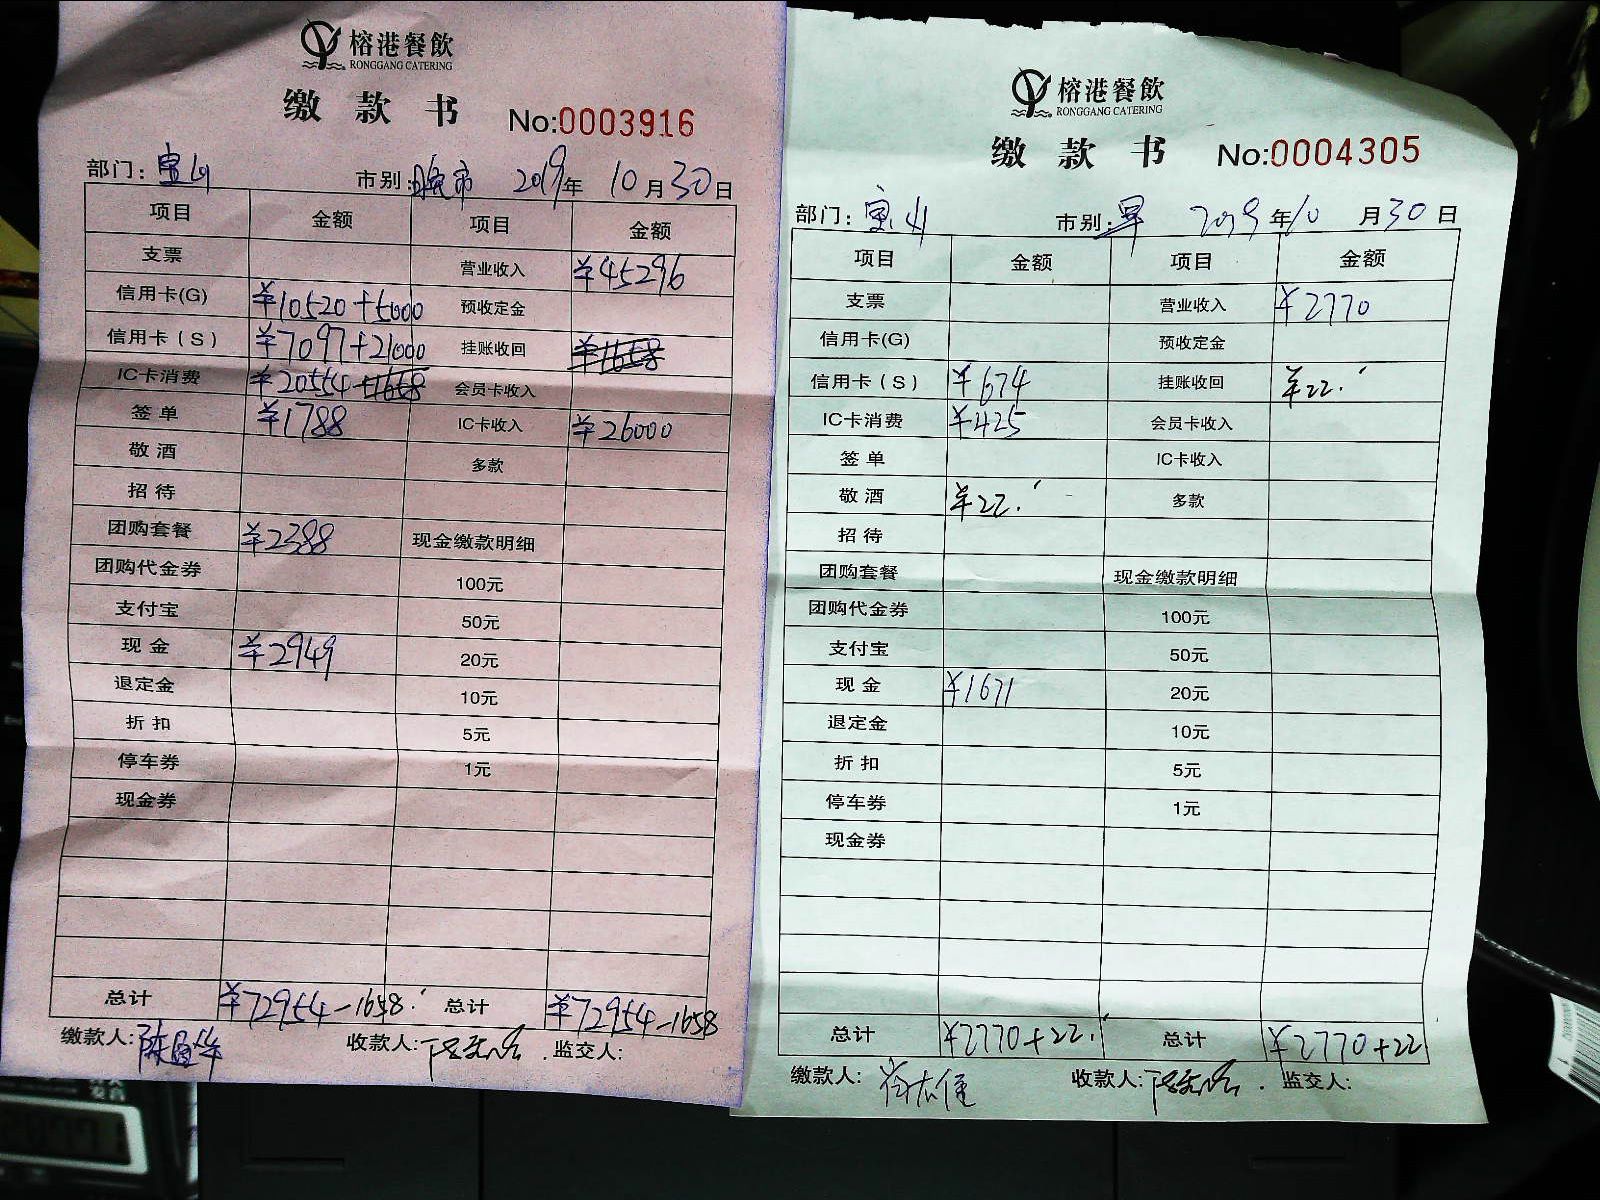 榕港餐飲
RONGGANG CATERING
缴款书 No:0003916
部门：宝山 市别：晚市 2019年 10月30日
项目 金额 项目 金额
支票 营业收入 ¥45296
信用卡(G) ¥10520+5000 预收定金
信用卡（S） ¥7097+21000 挂账收回 ¥1658
IC卡消费 ¥20554+1658 会员卡收入
签单 ¥1788 IC卡收入 ¥26000
敬酒 多款
招待
团购套餐 ¥2388 现金缴款明细
团购代金券 100元
支付宝 50元
现金 ¥2949 20元
退定金 10元
折扣 5元
停车券 1元
现金券
总计 ¥72954-1658. 总计 ¥72954-1658
缴款人: 收款人: 监交人:
榕港餐飲
RONGGANG CATERING
缴款书 No:0004305
部门：宝山 市别：早 2019年10月30日
项目 金额 项目 金额
支票 营业收入 ¥2770
信用卡(G) 预收定金
信用卡（S） ¥674 挂账收回 ¥22.
IC卡消费 ¥425 会员卡收入
签单 IC卡收入
敬酒 ¥22. 多款
招待
团购套餐 现金缴款明细
团购代金券 100元
支付宝 50元
现金 ¥1671 20元
退定金 10元
折扣 5元
停车券 1元
现金券
总计 ¥2770+22. 总计 ¥2770+22
缴款人: 收款人: 监交人: